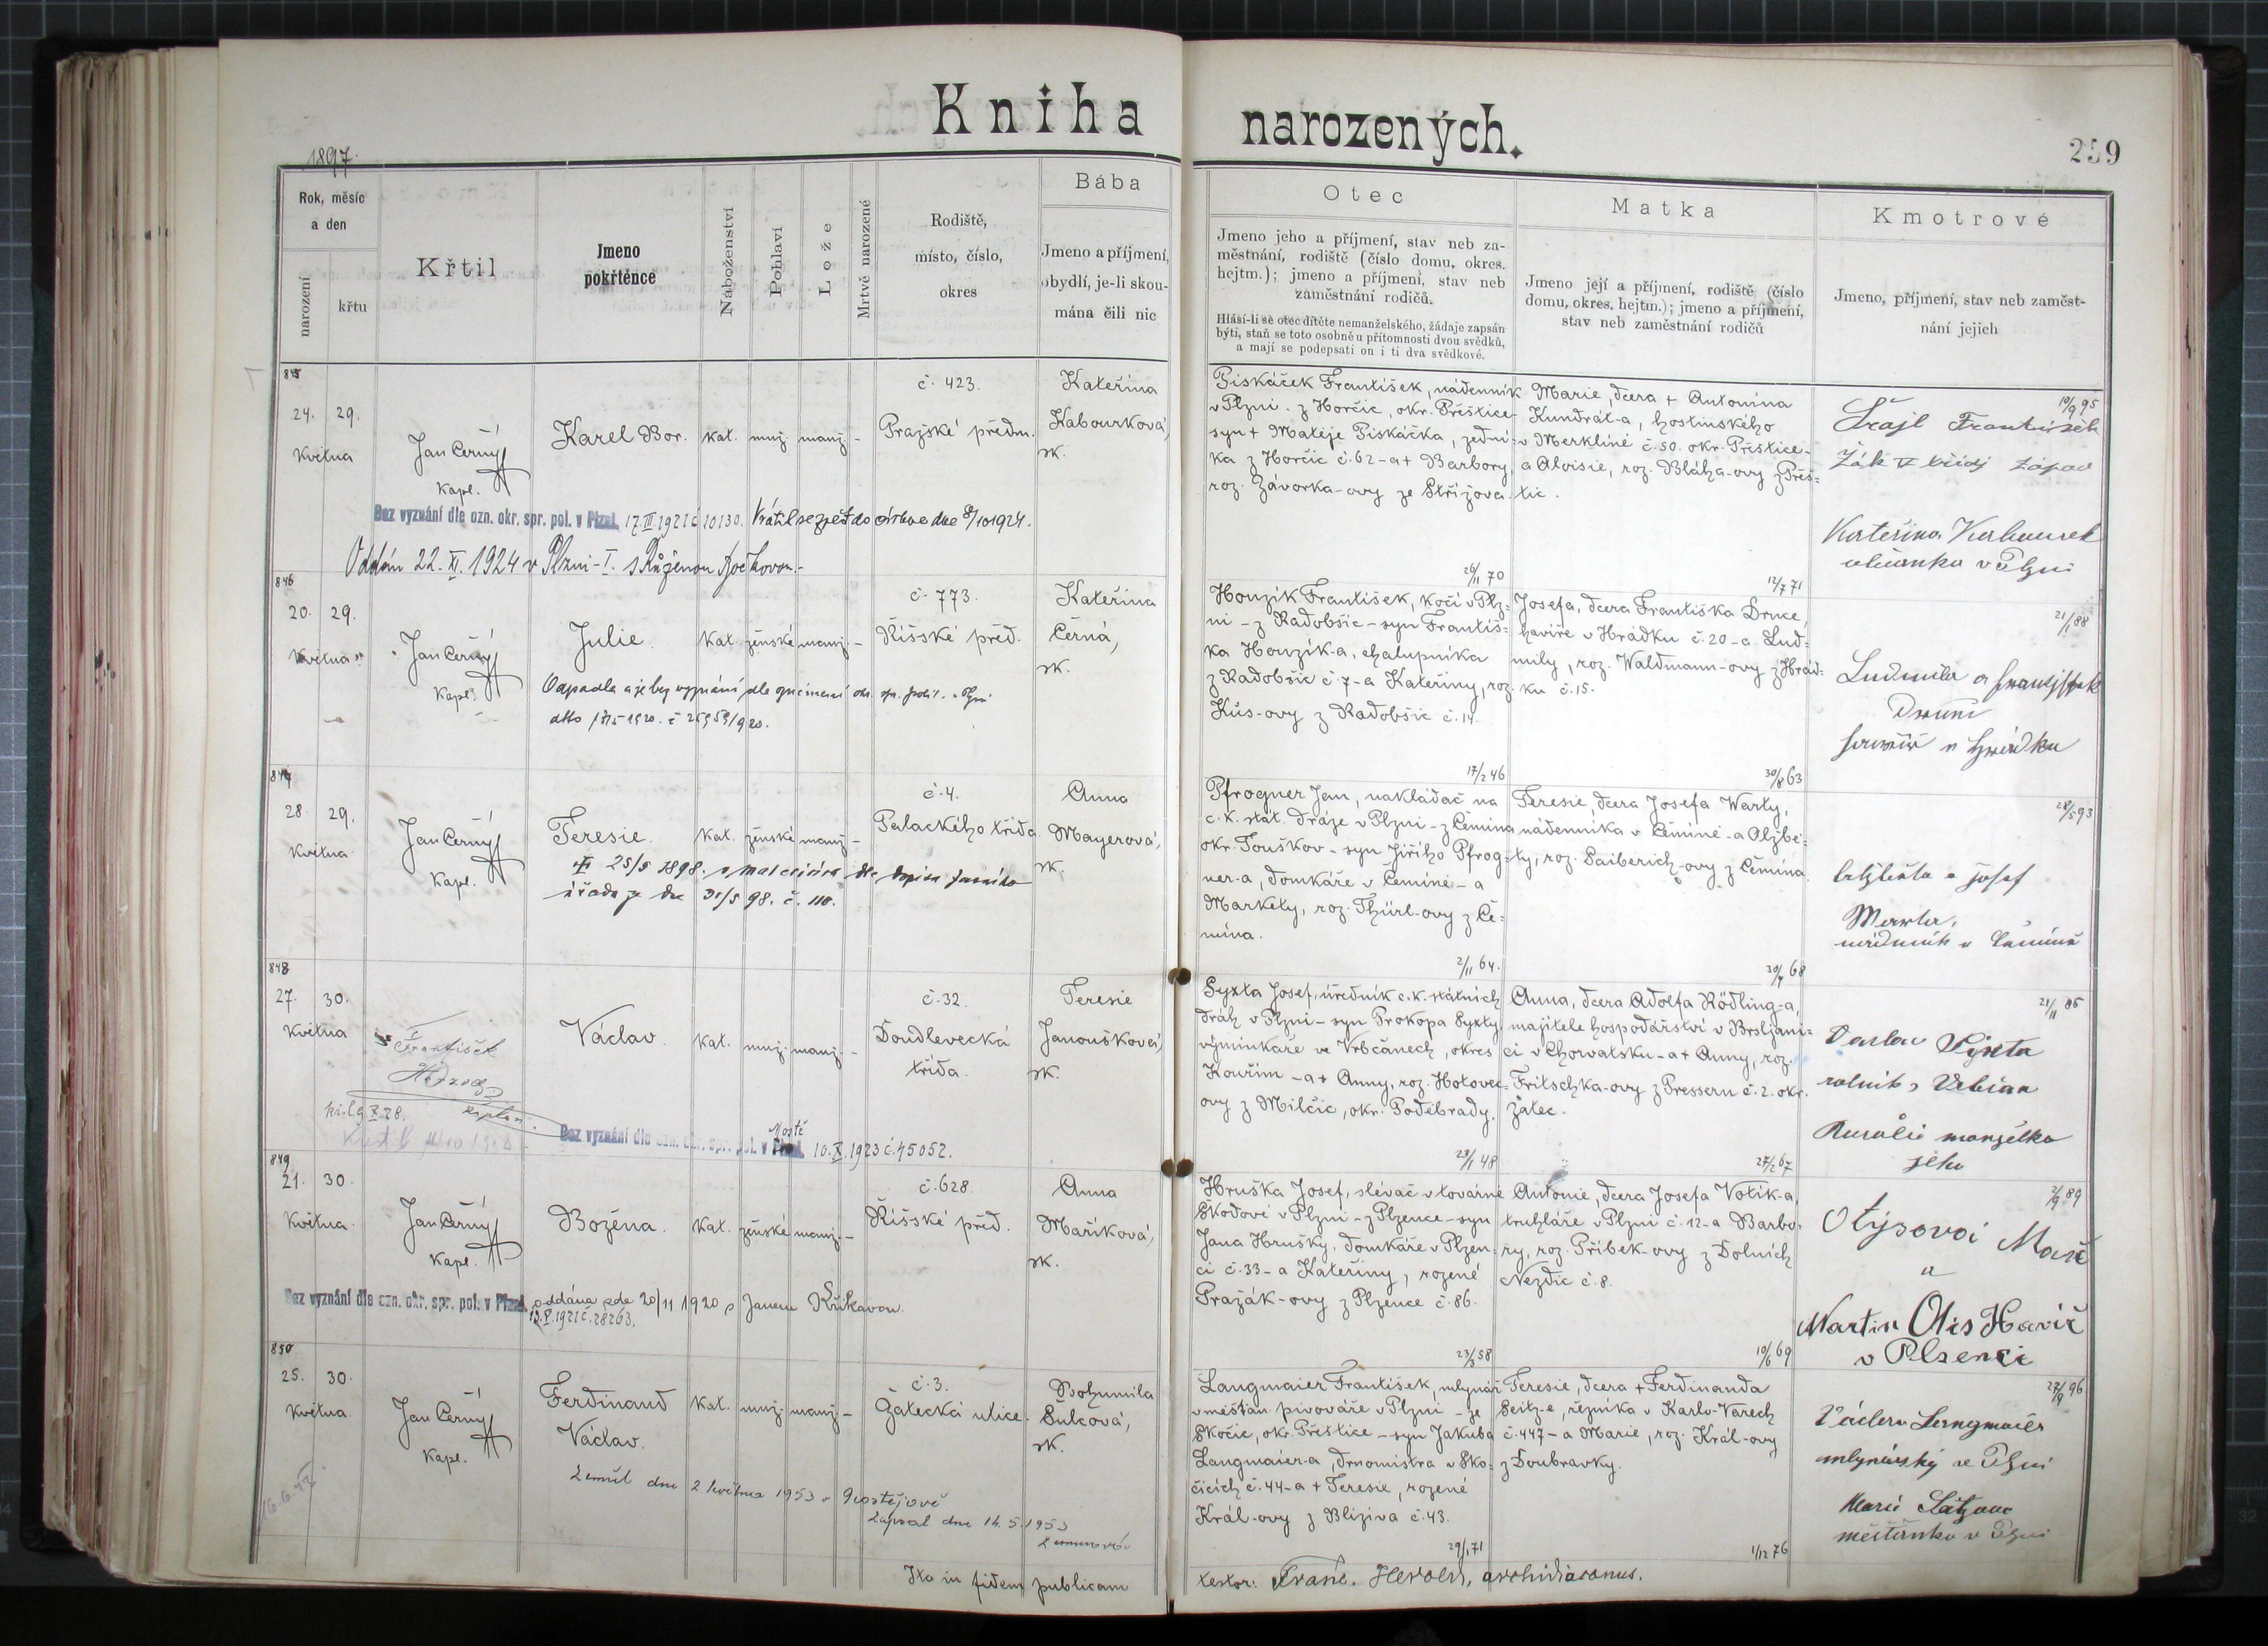 Kniha narozených.
259
1897.
Rok, měsíc
a den
narození
křtu
Křtil
Jmeno
pokřtěnce
Náboženství
Pohlaví
Lože
Mrtvě narozené
Rodiště,
místo, číslo,
okres
Bába
Jmeno a příjmení,
obydlí, je-li skou-
mána čili nic
Otec
Jmeno jeho a příjmení, stav neb za-
městnání, rodiště (číslo domu, okres.
hejtm.); jmeno a příjmení, stav neb
zaměstnání rodičů.
Hlásí-li se otec dítěte nemanželského, žádaje zapsán
býti, staň se toto osobně u přítomnosti dvou svědků,
a mají se podepsati on i ti dva svědkové.
Matka
Jmeno její a příjmení, rodiště (číslo
domu, okres. hejtm.); jmeno a příjmení,
stav neb zaměstnání rodičů
Kmotrové
Jmeno, příjmení, stav neb zaměst-
nání jejich
845
24. 29.
Května
Jan Černý
Kapl.
Karel Bor.
kat. muž. manž. –
č. 423.
Pražské předm.
Kateřina
Kabourková,
zk.
Bez vyznání dle ozn. okr. spr. pol. v Plzni, 17.III.1921 č 10130. Vrátil se zpět do církve dne 8/10 1924.
Oddán 22. XI. 1924 v Plzni-I. s Růženou
Piskáček František, nádenník
v Plzni - z Horčic, okr. Přeštice-
syn + Matěje Piskáčka, zední-
ka z Horčic č. 62 - a + Barbory,
roz. Závorka-ovy ze Střížova.
26/11 70
Marie, dcera + Antonína
Kundrát-a, hostinského
v Merklíně č. 50. okr. Přeštice-
a Aloisie, roz. Bláha-ovy z Přeš-
tic.
12/7 71
10/9 95
František
Žák V třídy
Kateřina Kabourek
občanka v Plzni
846
20. 29.
Května
Jan Černý
Kapl.
Julie.
kat. ženské manž. –
č. 773.
Říšské před.
Kateřina
Černá,
zk.
Odpadla a je bez vyznání dle oznámení okr. spr. polit. v Plzni
Houzík František, kočí v Plz-
ni - z Radobšic - syn Františ-
ka Houzík-a, chalupníka
z Radobšic č. 7 - a Kateřiny, roz.
Kůs-ovy z Radobšic č. 14.
17/2 46
Josefa, dcera Františka Drnce,
havíře v Hrádku č. 20 - a Lud-
mily, roz. Waldmann-ovy z Hrád-
ku č. 15.
30/8 63
21/1 88
Ludmila a František
847
28. 29.
Května
Jan Černý
Kapl.
Teresie.
kat. ženské manž. –
č. 4.
Palackého třída.
Anna
Mayerová,
zk.
25/5 1898.
úřadu ze dne 31/5 98. č. 110.
Pfrogner Jan, nakládač na
c. k. stát. dráze v Plzni - z Čemína
okr. Touškov - syn Jiřího Pfrog-
ner-a, domkáře v Čemíně - a
Markéty, roz. Thürl-ovy z Če-
mína.
2/11 64.
Teresie, dcera Josefa Warty,
nádenníka v Čemíně - a Alžbě-
ty, roz. Saiberich-ovy z Čemína.
30/4 68
28/5 93
Josef
848
27. 30.
Května
František
Herzog
kaplan.
Václav.
kat. muž. manž. –
č. 32.
Doudlevecká
třída.
Teresie
Janoušková,
zk.
Bez vyznání dle ozn. okr. spr. pol. v Mostě 10. X. 1923 č. 45052.
Syxta Josef, úředník c. k. státních
dráh v Plzni - syn Prokopa Syxty
výminkáře ve Vrbčanech, okres
Kouřim - a + Anny, roz. Hotovec-
ovy z Milčic, okr. Poděbrady.
23/1 48
Anna, dcera Adolfa Rödling-a,
majitele hospodářství v Brsljani-
ci v Chorvatsku - a + Anny, roz.
Fritschka-ovy z Pressern č. 2. okr.
Žatec.
27/2 67
21/11 85
Václav Syxta
rolník z
Rosalie manželka
jeho
849
21. 30.
Května
Jan Černý
Kapl.
Božena.
kat. ženské manž. –
č. 628.
Říšské před.
Anna
Maříková,
zk.
Bez vyznání dle ozn. okr. spr. pol. v Plzni oddána zde 20/11 1920 s Janem Křikavou.
13.V.1921 č. 28263.
Hruška Josef, slévač v továrně
Škodově v Plzni - z Plzence - syn
Jana Hrušky, domkáře v Plzen-
ci č. 33 - a Kateřiny, rozené
Pražák-ovy z Plzence č. 86.
23/3 58
Antonie, dcera Josefa Votík-a,
truhláře v Plzni č. 12 - a Barbo-
ry, roz. Přibek-ovy z Dolních
Nezdic č. 8.
10/6 69
2/9 89
Otýsovoi Marie
a
Martin Otis Havíř
v Plsenci
850
25. 30.
Května
Jan Černý
Kapl.
Ferdinand
Václav.
kat. muž. manž. –
č. 3.
Žatecká ulice.
Bohumila
Šulcová,
zk.
Zemřel dne 2 května 1953 v Prostějově
Zapsal dne 14. 5. 1953
Langmaier František, mlynář
v měšťan. pivováře v Plzni - ze
Skočic, okr. Přeštice - syn Jakuba
Langmaier-a, drnomistra v Sko-
čicích č. 44 - a + Teresie, rozené
Král-ovy z Bliziva č. 43.
29/1 71
Teresie, dcera + Ferdinanda
Seitz-e, řezníka v Karlo-Varech
č. 447 - a Marie, roz. Král-ovy
z Doubravky.
1/12 76
27/9 96
Václav Langmaier
mlynářský ve Plzni
Marie
měšťanka v Plzni
Ita in fidem publicam
testor: Franc. Herold, archidiaconus.